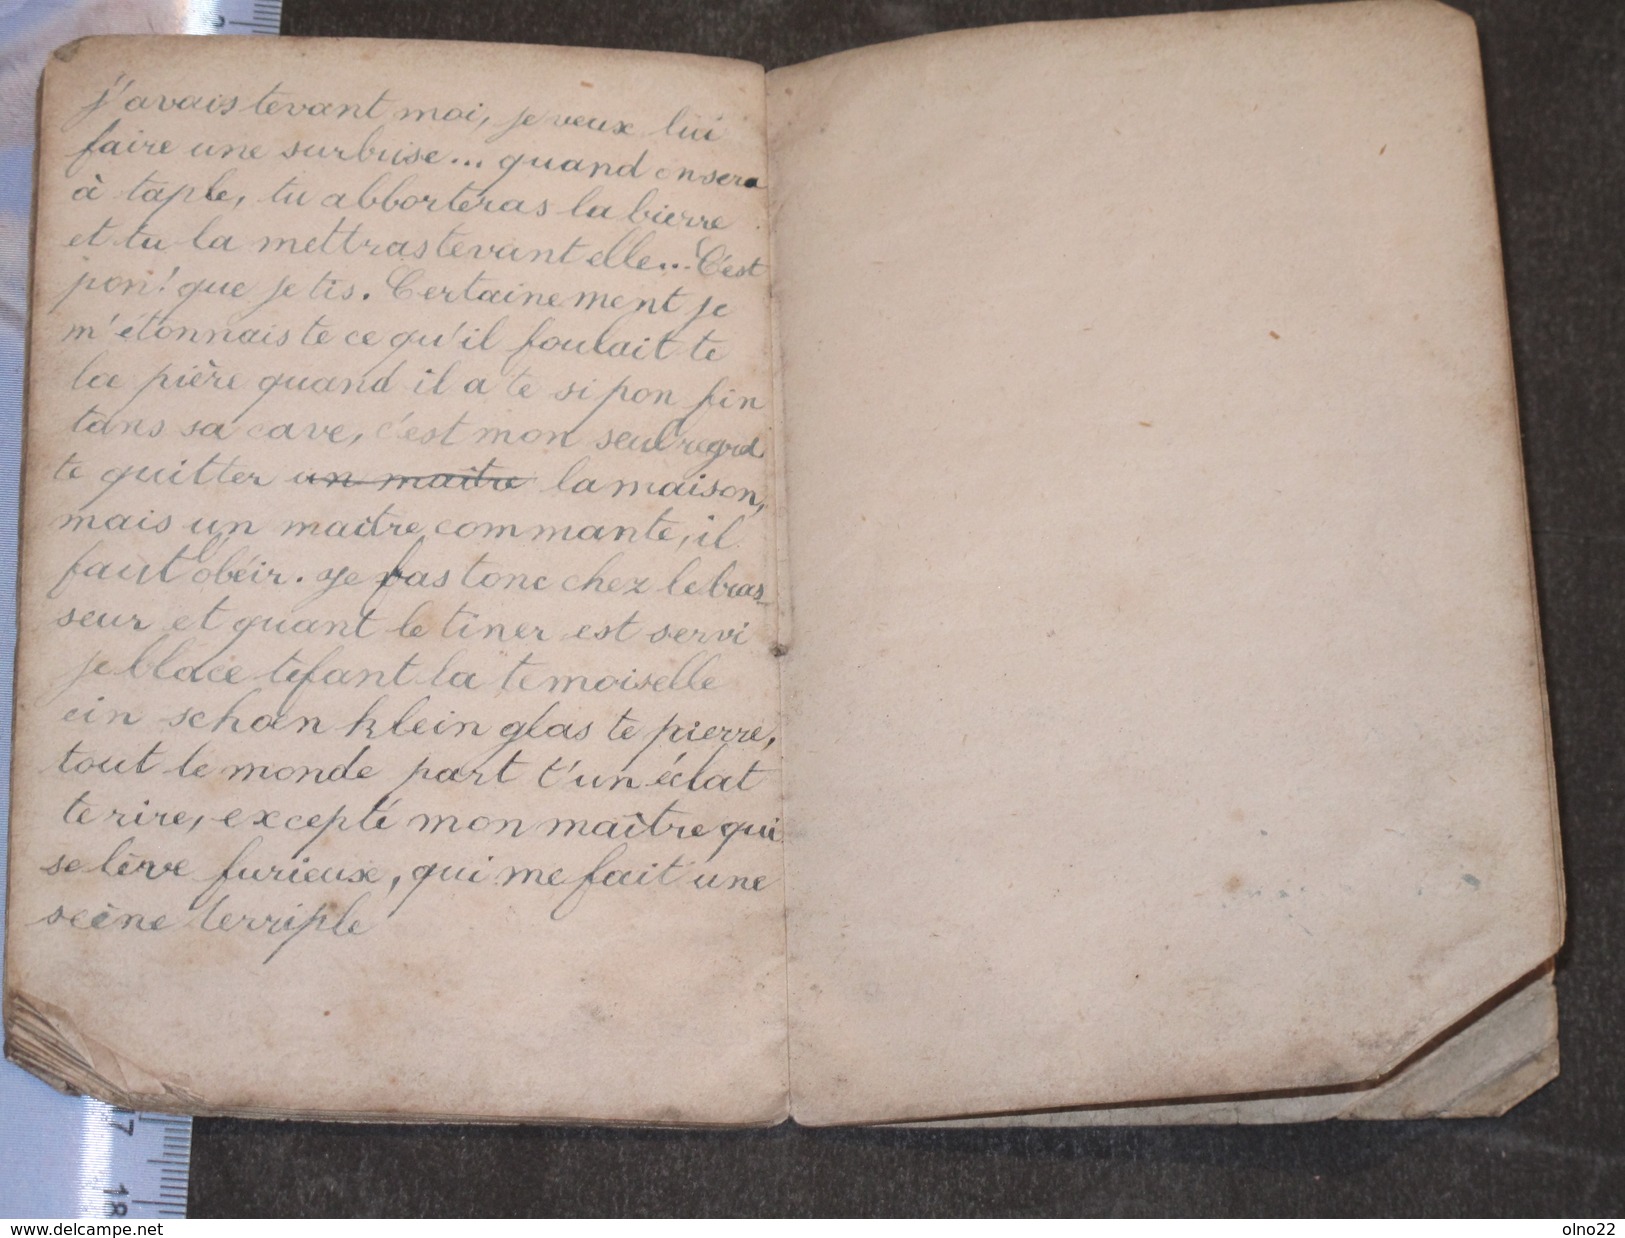 j'avais tevant moi, je veux lui
faire une surbrise... quand on sera
à taple, tu abborteras la bierre
et tu la mettras tevant elle... C'est
pon! que je tis. Certainement je
m'étonnais te ce qu'il foulait te
la pière quand il a te si pon fin
tans sa cave, c'est mon seul regret
te quitter un maitre la maison,
mais un maître commante, il
faut obéir. Je fas tonc chez le bras-
seur et quant le tiner est servi
je blace tefant la temoiselle
ein schön klein glas te pierre,
tout le monde part t'un éclat
te rire, excepté mon maître qui
se lève furieux, qui me fait une
scène terriple
17
18
delcampe.net
olno22